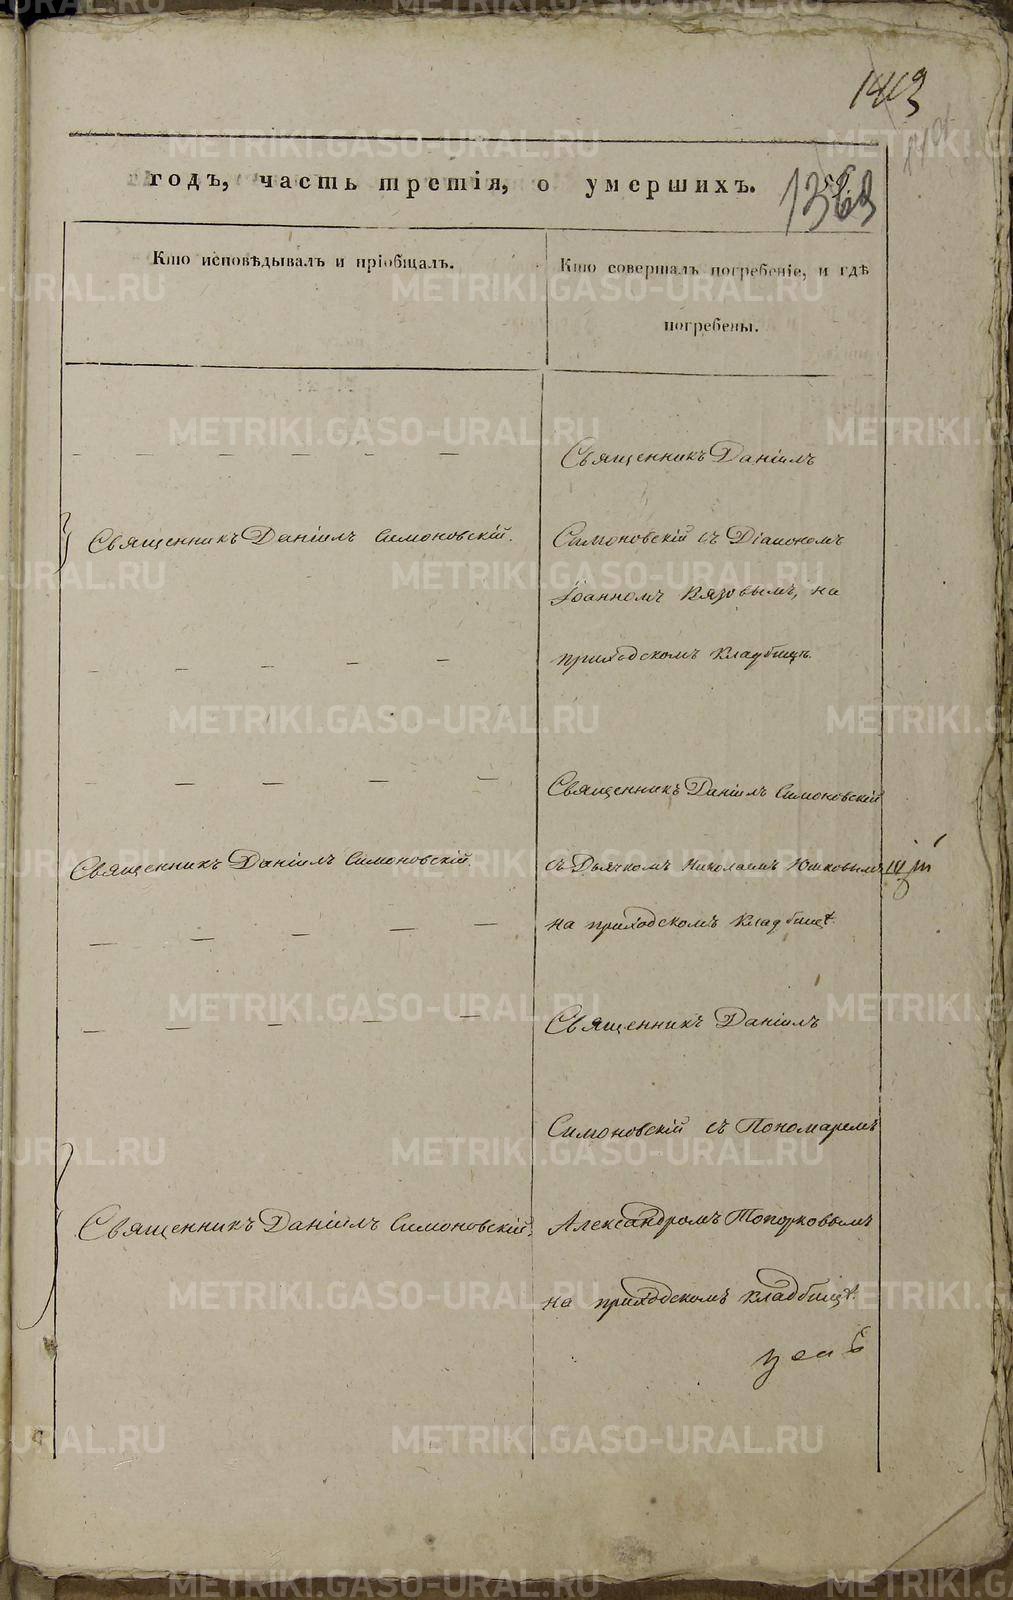 1413
годъ, часть третія, о умершихъ.
Кто исповѣдывалъ и пріобщалъ.
Кто совершалъ погребеніе, и гдѣ
погребены.
Священникъ Даніилъ
Священникъ Даніилъ Симоновскій.
Симоновскій съ Діакономъ
Іоанномъ Вязовымъ, на
приходскомъ кладбищѣ.
Священникъ Даніилъ Симоновскій
Священникъ Даніилъ Симоновскій.
съ Дьячкомъ Николаемъ Юшковымъ
на приходскомъ кладбищѣ.
Священникъ Даніилъ
Симоновскій съ Пономаремъ
Священникъ Даніилъ Симоновскій.
Александромъ Топорковымъ
на приходскомъ кладбищѣ.
METRIKI.GASO-URAL.RU